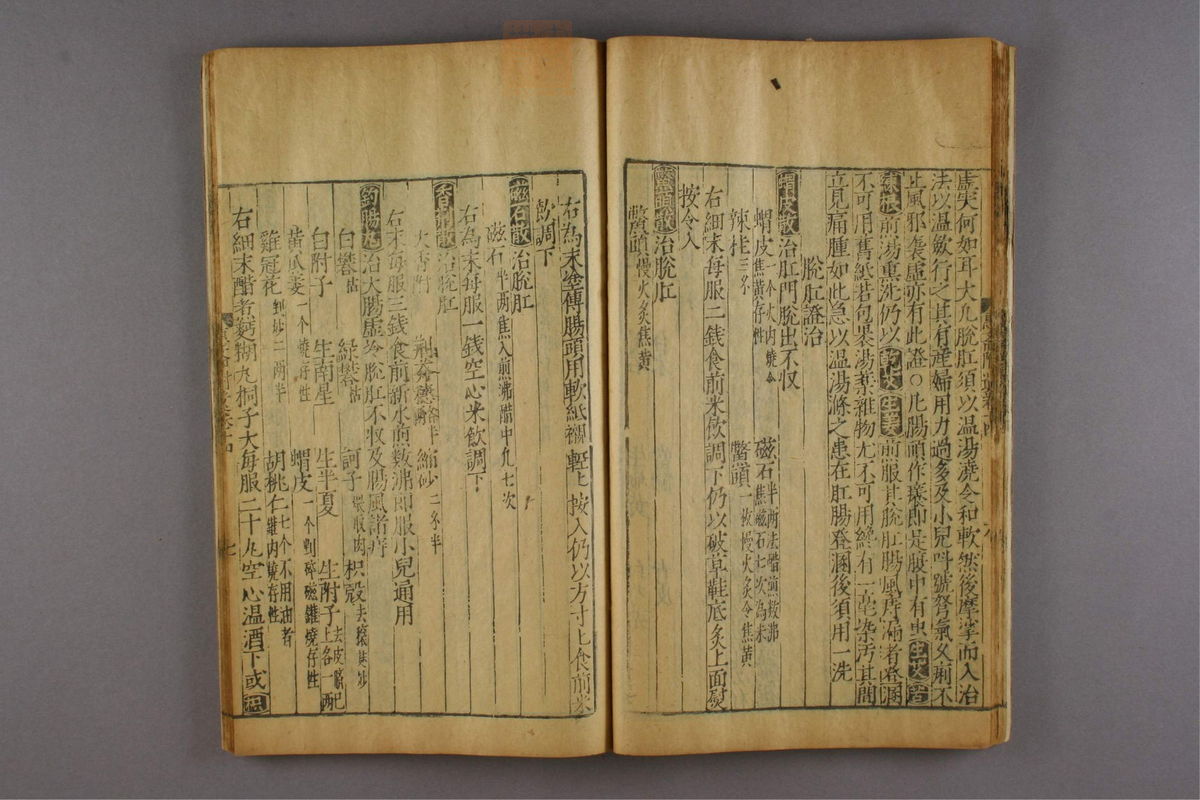 虛实何如耳大凡脫肛須以温湯澆令和軟然後摩挲而入治
法以温斂行之其有產婦用力過多及小兒呌號努氣久痢不
止風邪襲虛亦有此證○凡腸頭作癢即是腹中有虫生艾苦
練根前湯熏洗仍以乾艾生姜煎服其脫肛腸風痔漏者登溷
不可用舊紙若包裹湯藥雜物尤不可用纔有一毫染汚其間
立見痛腫如此急以温湯滌之患在肛腸登溷後須用一洗
脫肛證治
蝟皮散治肛門脫出不収
蝟皮一个火内燒令焦黄存性
磁石半两法醋煎数沸焦磁石七次為末
辣桂三分
鱉頭一枚慢火炙令焦黄
右細末每服二錢食前米飲調下仍以破草鞋底炙上面熨
按令入
鱉頭散治脫肛
鱉頭慢火炙焦黄
右為末塗傳腸頭用軟紙襯軽上按入仍以方寸匕食前米
飲調下
磁石散治脫肛
磁石半两焦入煎沸醋中凡七次
右為末每服一錢空心米飲調下
香荊散治脫肛
大香附 荊芥穗各半两 縮砂二分半
右末每服三錢食前新水煎数沸即服小兒通用
釣腸丸治大腸虛冷脫肛不収及腸風諸痔
白礬枯 緑礬枯 訶子煨取肉 枳殼去穰麩炒
白附子 生南星 生半夏 生附子去皮臍已上各一两
黄瓜蔞一个燒存性 蝟皮一个剉碎磁罐燒存性
雞冠花剉炒二两半 胡桃仁七个不用油者罐内燒存性
右細末醋煮麫糊丸桐子大每服二十丸空心温酒下或枳
七